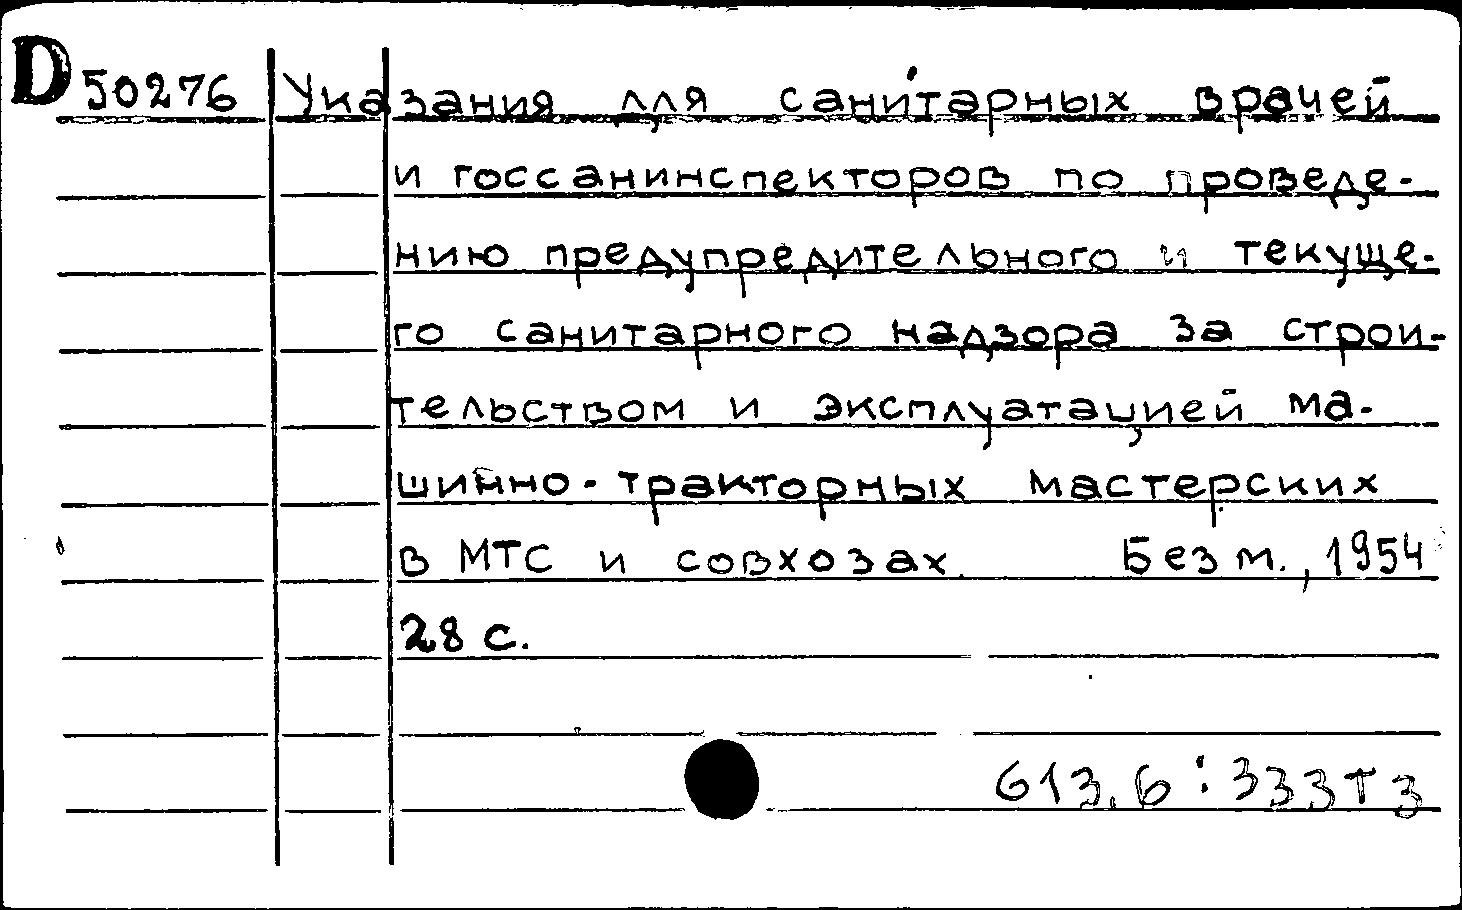 D 50276 Указания для санитарных врачей
и госсанинспекторов по проведе-
нию предупредительного и текуще-
го санитарного надзора за строи-
тельством и эксплуатацией ма-
шинно-тракторных мастерских
в МТС и совхозах. Без м., 1954
28 с.
613.6:333Т3